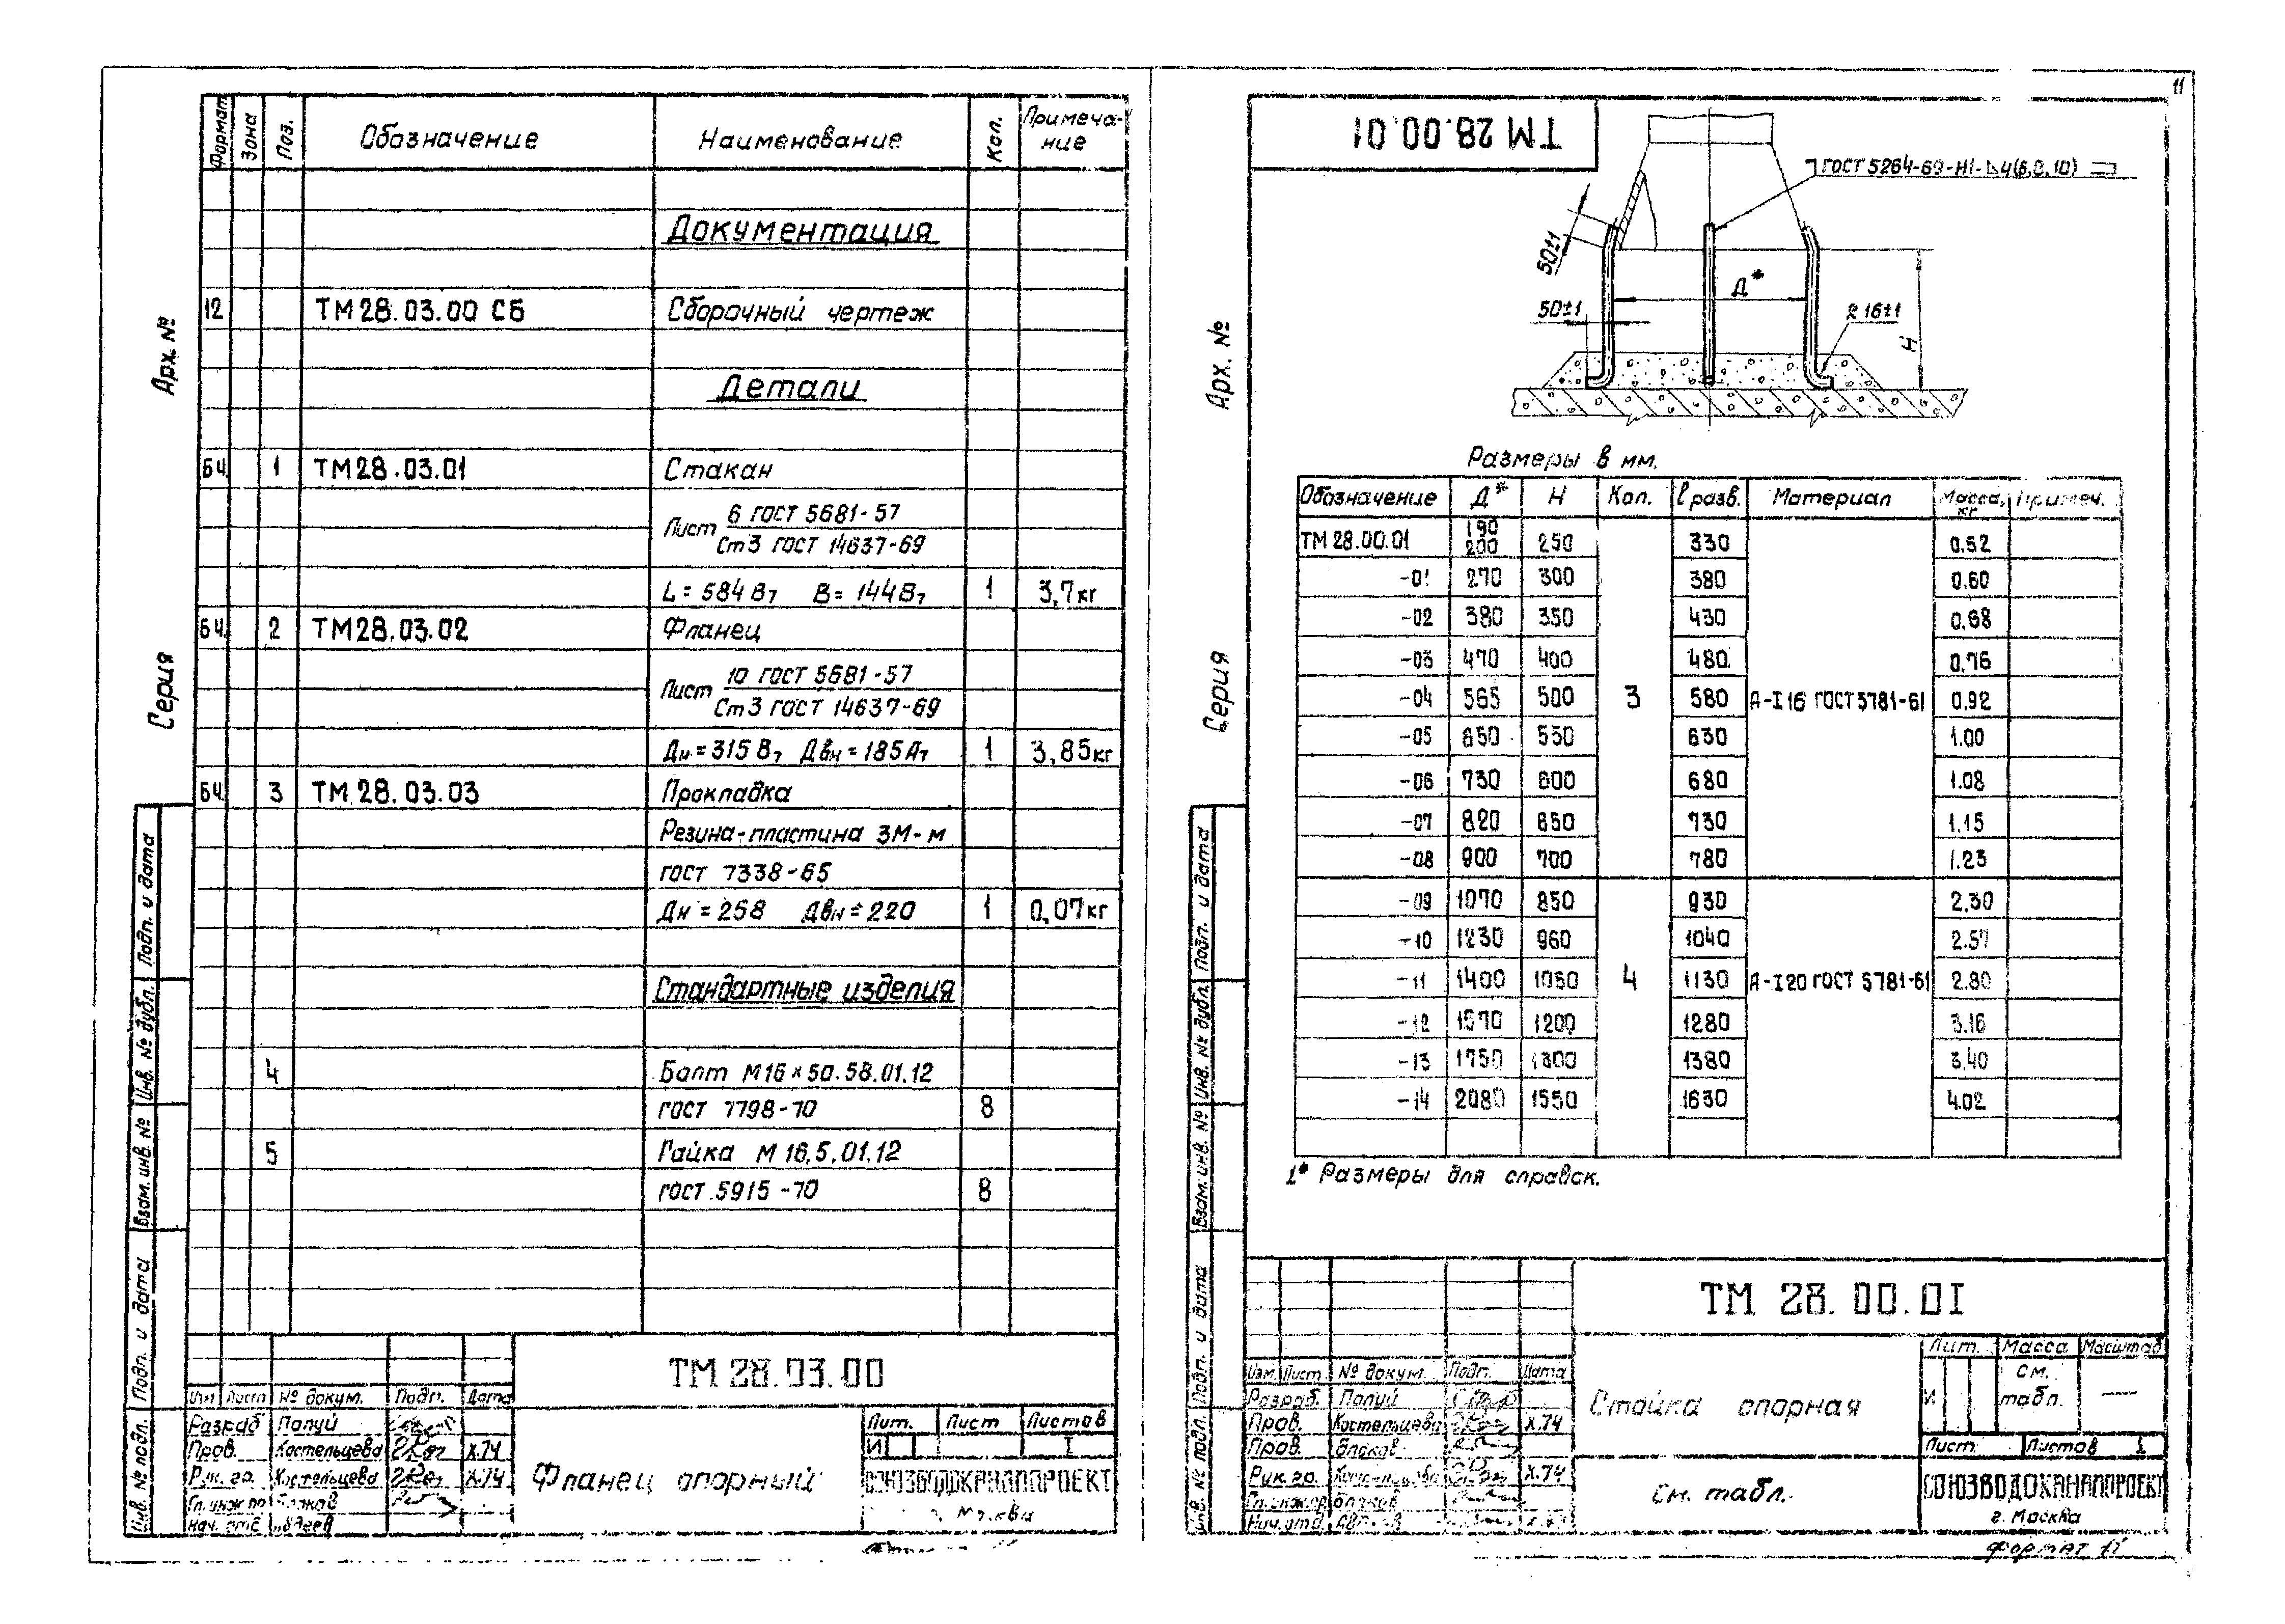 11
Формат Зона Поз. Обозначение Наименование Кол. Примеча-
ние
Документация
12 ТМ28.03.00 СБ Сборочный чертеж
Детали
БЧ 1 ТМ28.03.01 Стакан
Лист 6 ГОСТ 5681-57
Ст3 ГОСТ 14637-69
L = 584 В7 В = 144 В7 1 3,7кг
БЧ. 2 ТМ28.03.02 Фланец
Лист 10 ГОСТ 5681-57
Ст3 ГОСТ 14637-69
Дн = 315 В7 Двн = 185 А7 1 3,85кг
БЧ. 3 ТМ.28.03.03 Прокладка
Резина-пластина 3М-м
ГОСТ 7338-65
Дн = 258 Двн = 220 1 0,07кг
Стандартные изделия
4 Болт М16 х 50.58.01.12
ГОСТ 7798-70 8
5 Гайка М 16.5.01.12
ГОСТ.5915-70 8
Арх. №
Серия
Подп. и дата
Инв. № дубл.
Взам. инв. №
Подп. и дата
Инв. № подл.
ТМ 28.03.00
Изм Лист № докум. Подп. Дата
Разраб Полуй
Пров. Костельцева X.74
Рук. гр. Костельцева X.74
Фланец опорный
Лит. Лист Листов
И 1
СОЮЗВОДОКАНАЛПРОЕКТ
ТМ 28.00.01
ГОСТ 5264-69-Н1-⊿4(6,8,10)
50±1
Д*
50±1
R 16±1
Н
Размеры в мм.
Обозначение Д* Н Кол. l разв. Материал Масса, кг Примеч.
ТМ 28.00.01 190 200 250 330 0.52
-01 270 300 380 0.60
-02 380 350 430 0,68
-03 470 400 480 0,76
-04 565 500 3 580 А-I 16 ГОСТ 5781-61 0,92
-05 650 550 630 1.00
-06 730 600 680 1.08
-07 820 650 730 1.15
-08 900 700 780 1.23
-09 1070 850 930 2.30
-10 1230 960 1040 2.57
-11 1400 1050 4 1130 А-I 20 ГОСТ 5781-61 2.80
-12 1570 1200 1280 3.16
-13 1750 1300 1380 3,40
-14 2080 1550 1630 4.02
1* Размеры для справок.
Арх. №
Серия
Подп. и дата
Инв. № дубл.
Взам. инв. №
Подп. и дата
Инв. № подл.
ТМ 28.00.01
Изм. Лист № докум. Подп. Дата
Разраб. Полуй
Пров. Костельцева X.74
Пров. Блохов
Рук. гр. X.74
Стойка опорная
Лит. Масса Масштаб
И см. табл. —
Лист Листов 1
см. табл.
СОЮЗВОДОКАНАЛПРОЕКТ
г. Москва
Формат 11